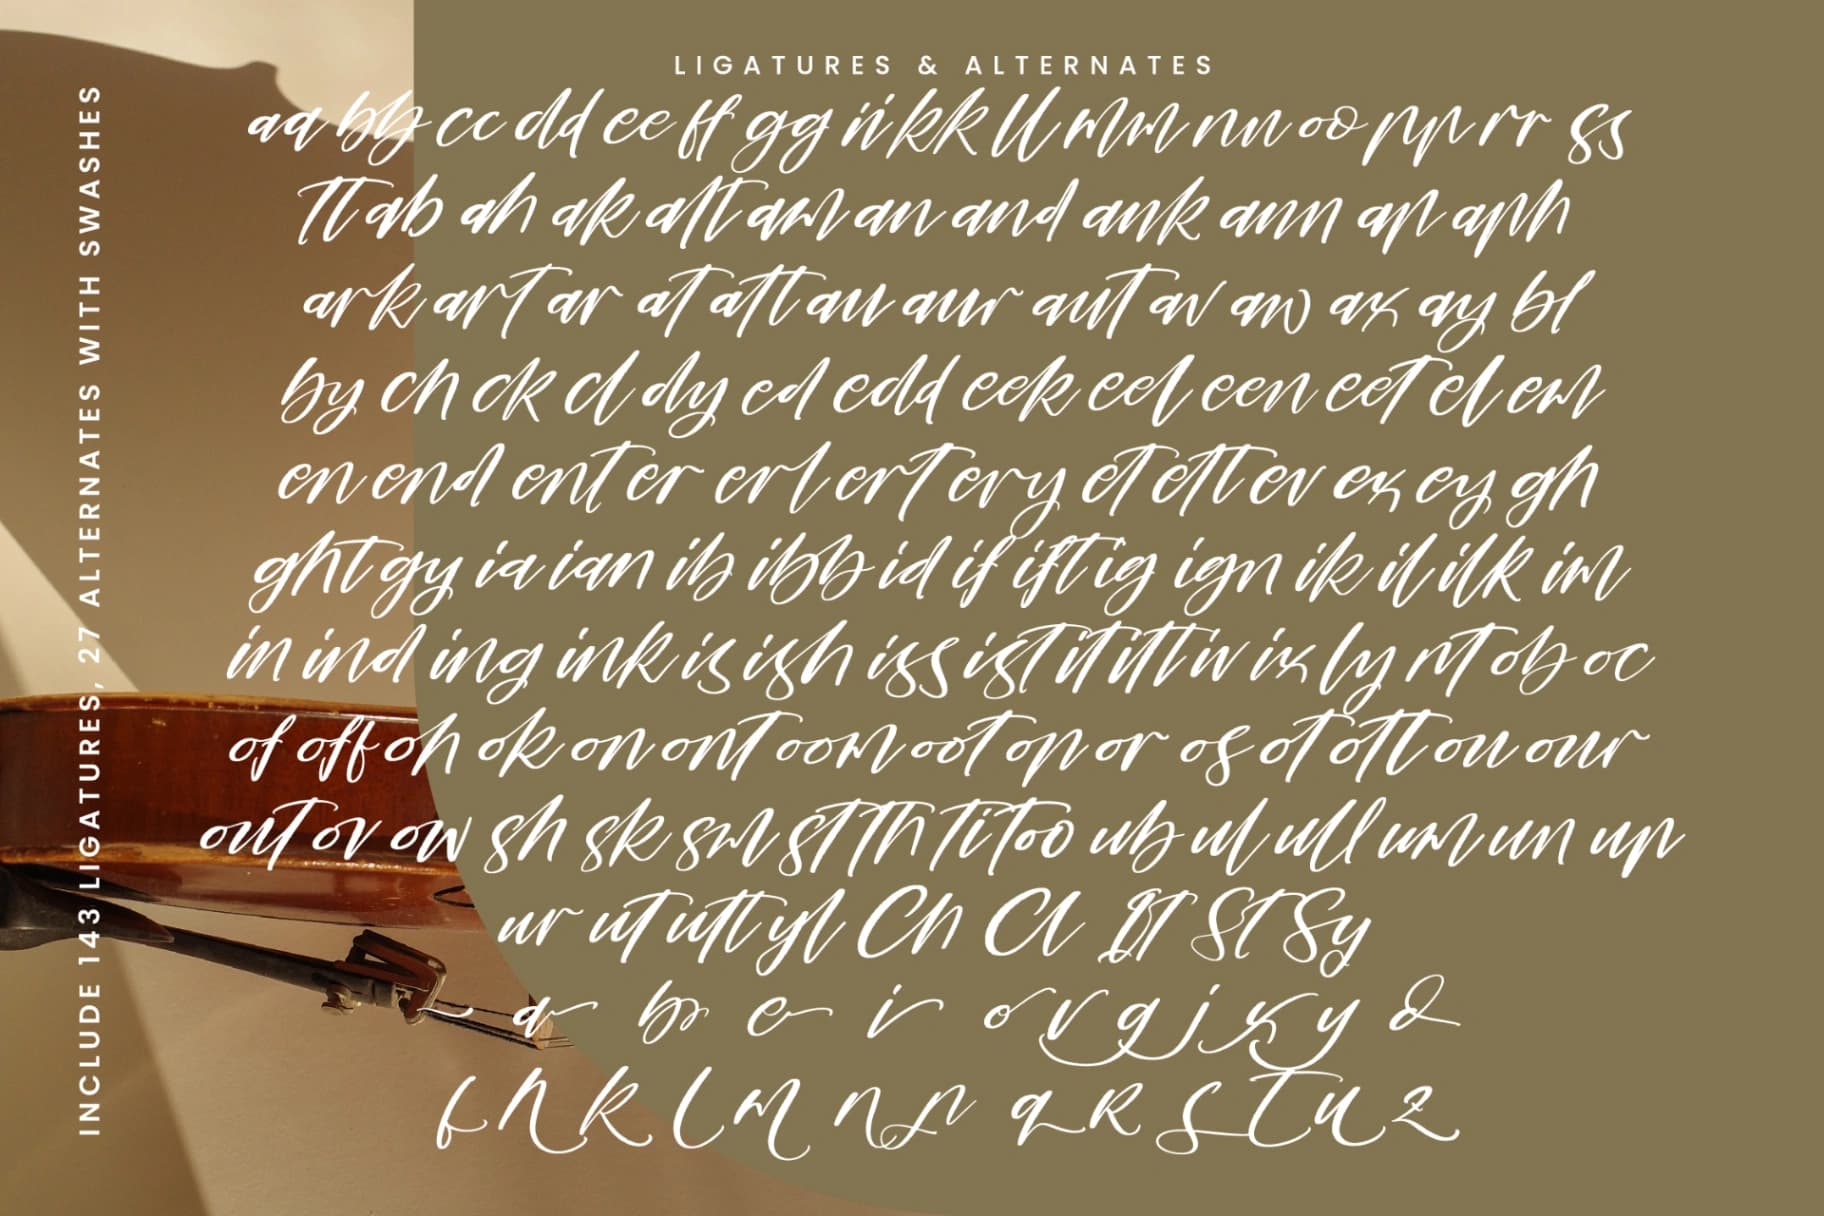 LIGATURES & ALTERNATES
aa bb cc dd ee ff gg ii kk ll mm nn oo pp rr ss
tt ab ah ak alt am an and ank ann ap aph
ark art ar at att au aur aut av aw ax ay bl
by ch ck cl dy ed edd eek eel een eet el em
en end ent er erl ert ery et ett ev ex ey gh
ght gy ia ian ib ibb id if ift ig ign ik il ilk im
in ind ing ink is ish iss ist it itt iv ix ly nt ob oc
of off oh ok on ont oom oot op or os ot ott ou our
out ov ow sh sk sm st th ti too ub ul ull um un up
ur ut utt yl Ch Cl It St Sy
a b e i o v g j x y d
f h k l m n p q r s t u z
INCLUDE 143 LIGATURES, 27 ALTERNATES WITH SWASHES